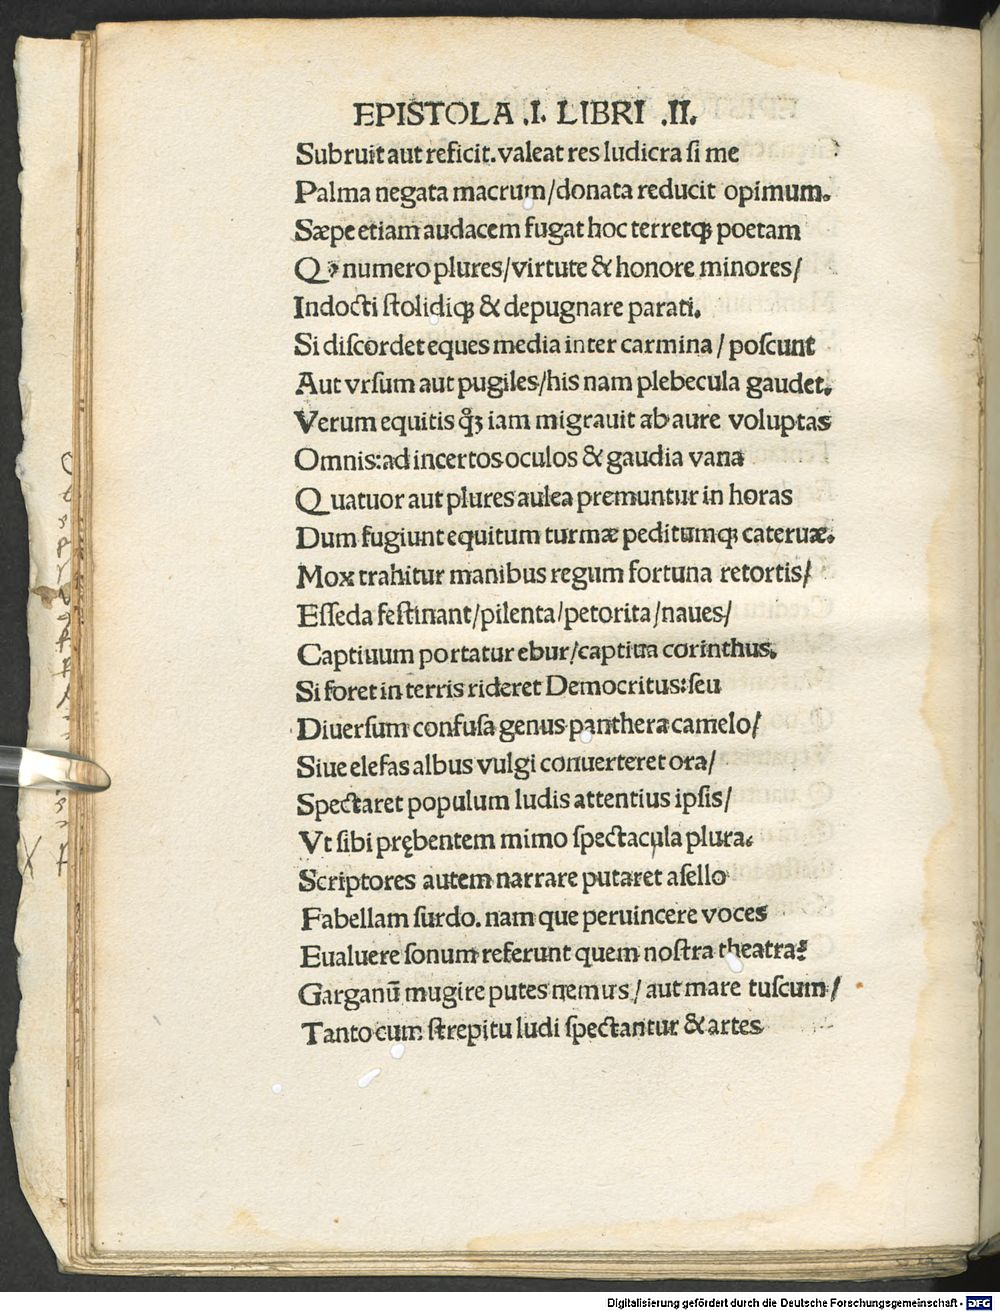 EPISTOLA .I. LIBRI .II.
Subruit aut reficit. valeat res ludicra ſi me
Palma negata macrum/donata reducit opimum.
Sæpe etiam audacem fugat hoc terretqꝫ poetam
Qꝙ numero plures/virtute & honore minores/
Indocti ſtolidiqꝫ & depugnare parati.
Si diſcordet eques media inter carmina / poſcunt
Aut vrſum aut pugiles/his nam plebecula gaudet.
Verum equitis q̊ꝫ iam migrauit ab aure voluptas
Omnis:ad incertos oculos & gaudia vana
Quatuor aut plures aulea premuntur in horas
Dum fugiunt equitum turmæ peditumqꝫ cateruæ.
Mox trahitur manibus regum fortuna retortis/
Eſſeda feſtinant/pilenta/petorita/naues/
Captiuum portatur ebur/captiua corinthus.
Si foret in terris rideret Democritus:ſeu
Diuerſum confuſa genus panthera camelo/
Siue elefas albus vulgi conuerteret ora/
Spectaret populum ludis attentius ipſis/
Vt ſibi prębentem mimo ſpectacula plura.
Scriptores autem narrare putaret aſello
Fabellam ſurdo. nam que peruincere voces
Eualuere ſonum referunt quem noſtra theatra?
Garganū mugire putes nemus / aut mare tuſcum/
Tanto cum ſtrepitu ludi ſpectantur & artes
Digitalisierung gefördert durch die Deutsche Forschungsgemeinschaft - DFG